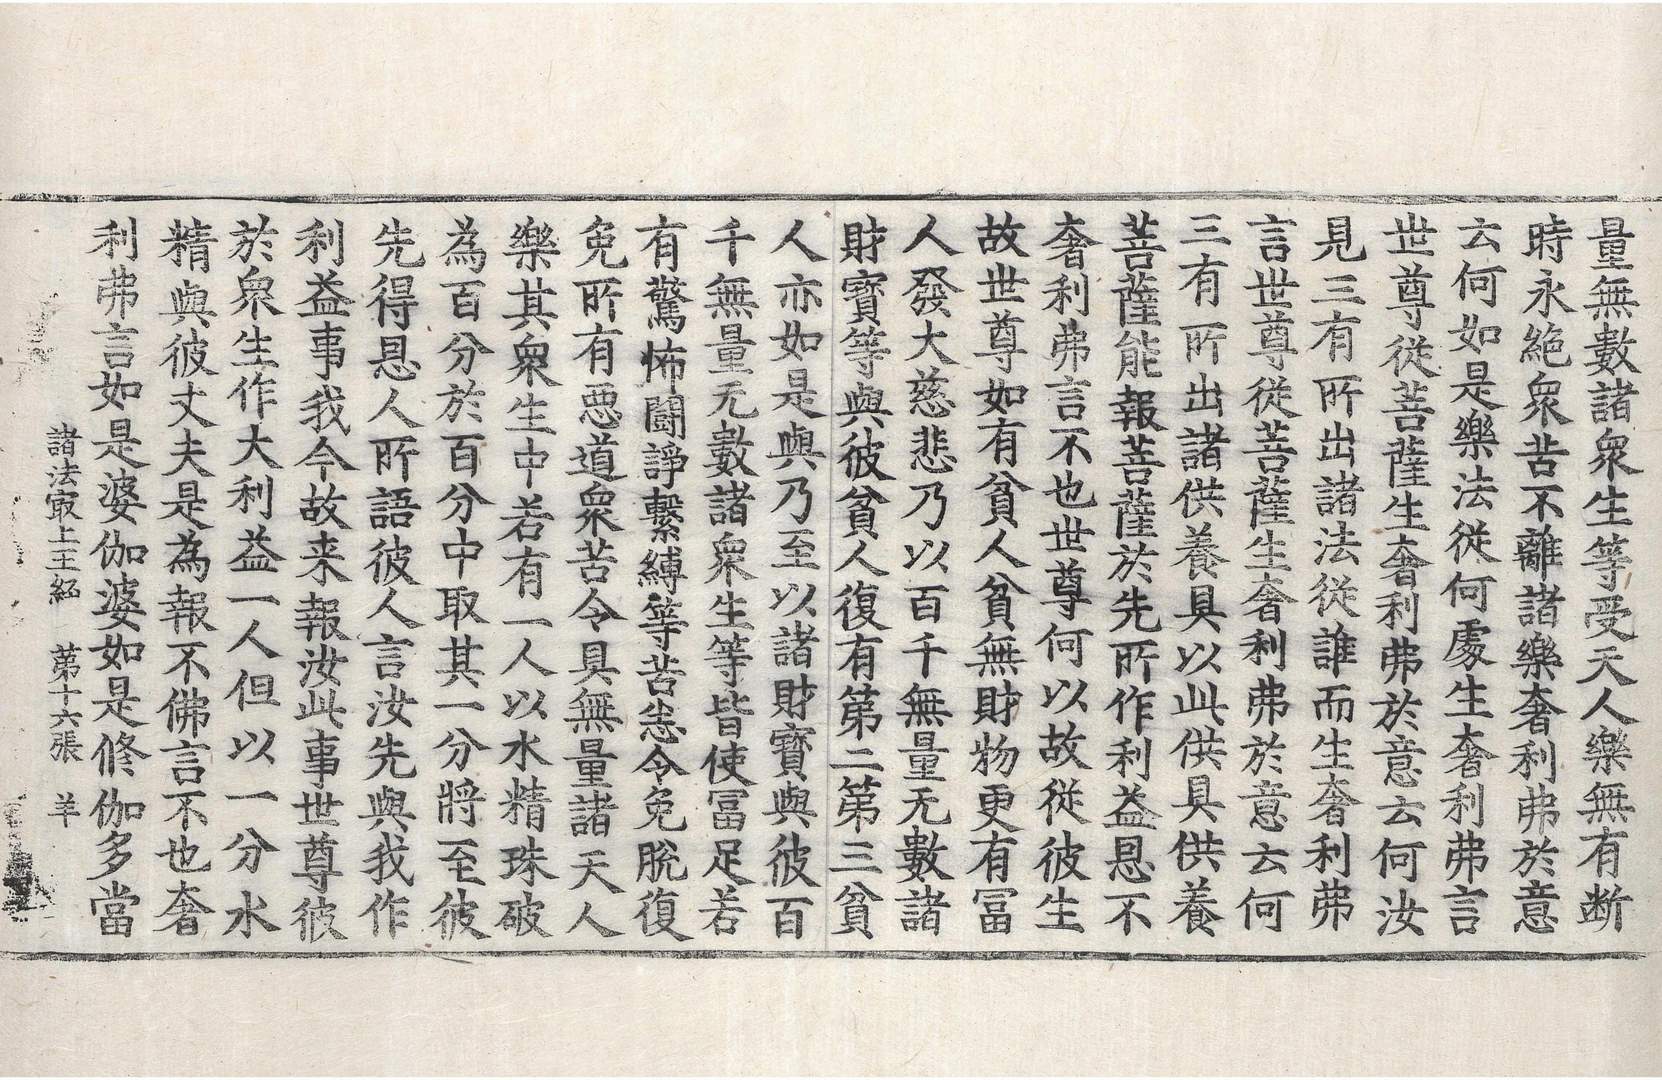 量無數諸衆生等受天人樂無有断
時永絶衆苦不離諸樂奢利弗於意
云何如是樂法從何處生奢利弗言
世尊從菩薩生奢利弗於意云何汝
見三有所出諸法從誰而生奢利弗
言世尊從菩薩生奢利弗於意云何
三有所出諸供養具以此供具供養
菩薩能報菩薩於先所作利益恩不
奢利弗言不也世尊何以故從彼生
故世尊如有貧人貧無財物更有冨
人發大慈悲乃以百千無量无數諸
財寳等與彼貧人復有第二第三貧
人亦如是與乃至以諸財寳與彼百
千無量无數諸衆生等皆使冨足若
有驚怖鬪諍繫縛等苦恙令免脫復
免所有悪道衆苦令具無量諸天人
樂其衆生中若有一人以水精珠破
為百分於百分中取其一分將至彼
先得恩人所語彼人言汝先與我作
利益事我今故来報汝此事世尊彼
於衆生作大利益一人但以一分水
精與彼丈夫是為報不佛言不也奢
利弗言如是婆伽婆如是修伽多當
諸法冣上王経　第十六張　羊